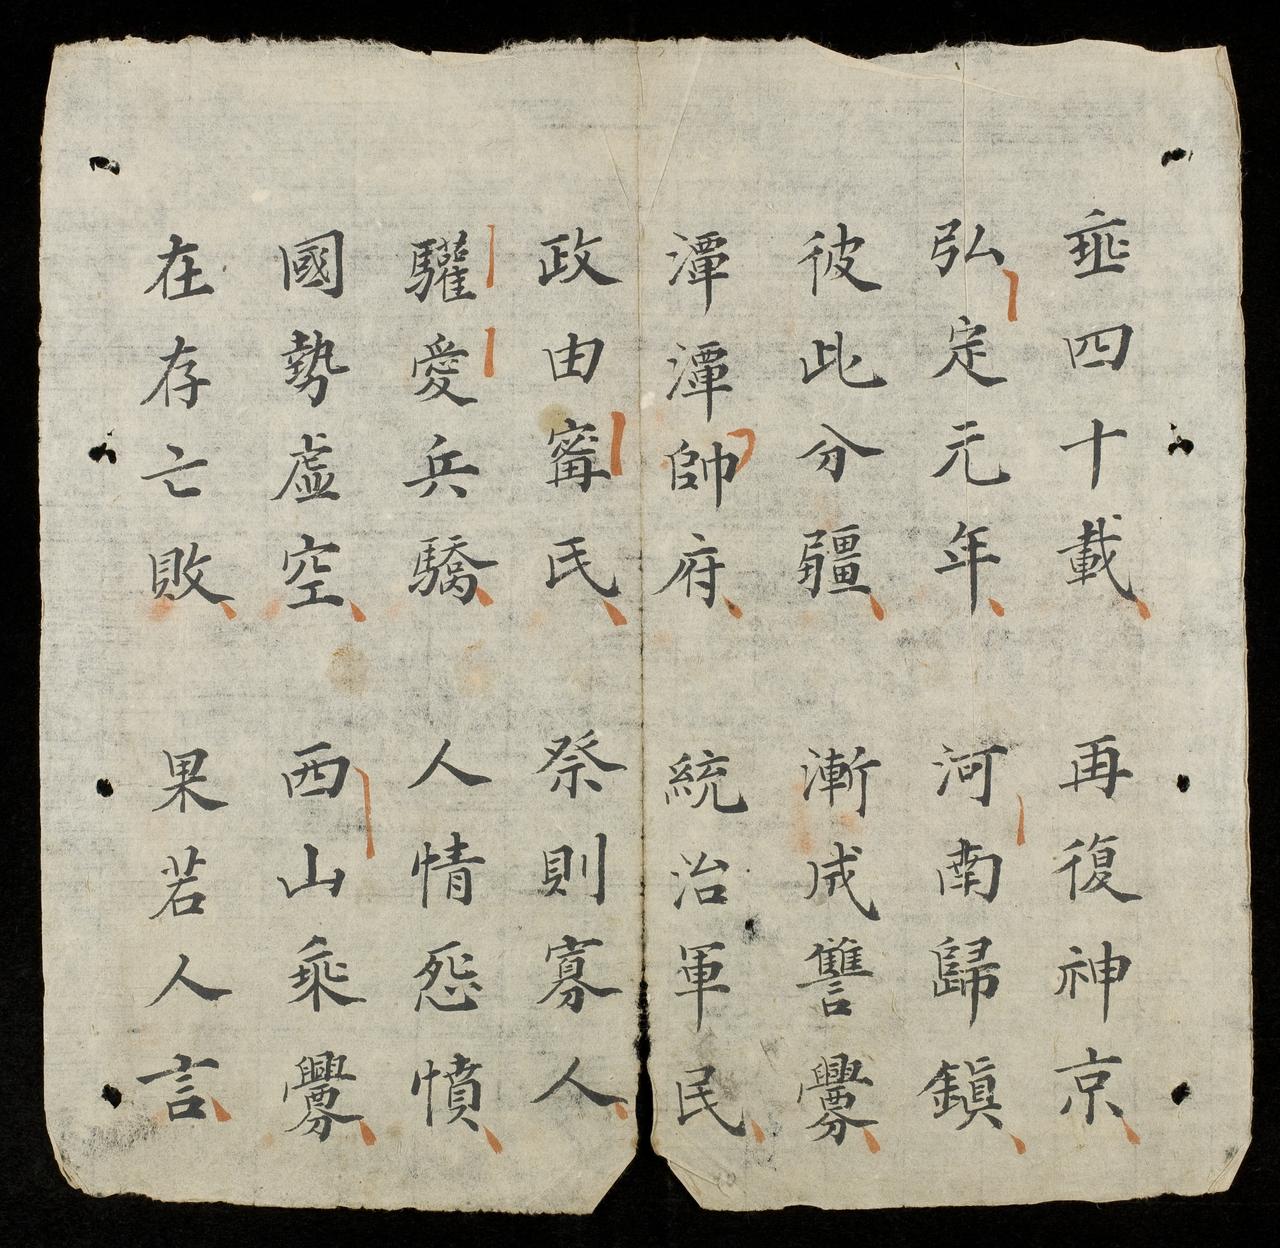 垂四十載 再復神京
弘定元年 河南歸鎮
彼此分疆 漸成讐釁
潭潭帥府 統治軍民
政由寗氏 祭則寡人
驩愛兵驕 人情怨憤
國勢虛空 西山乘釁
在存亡敗 果若人言